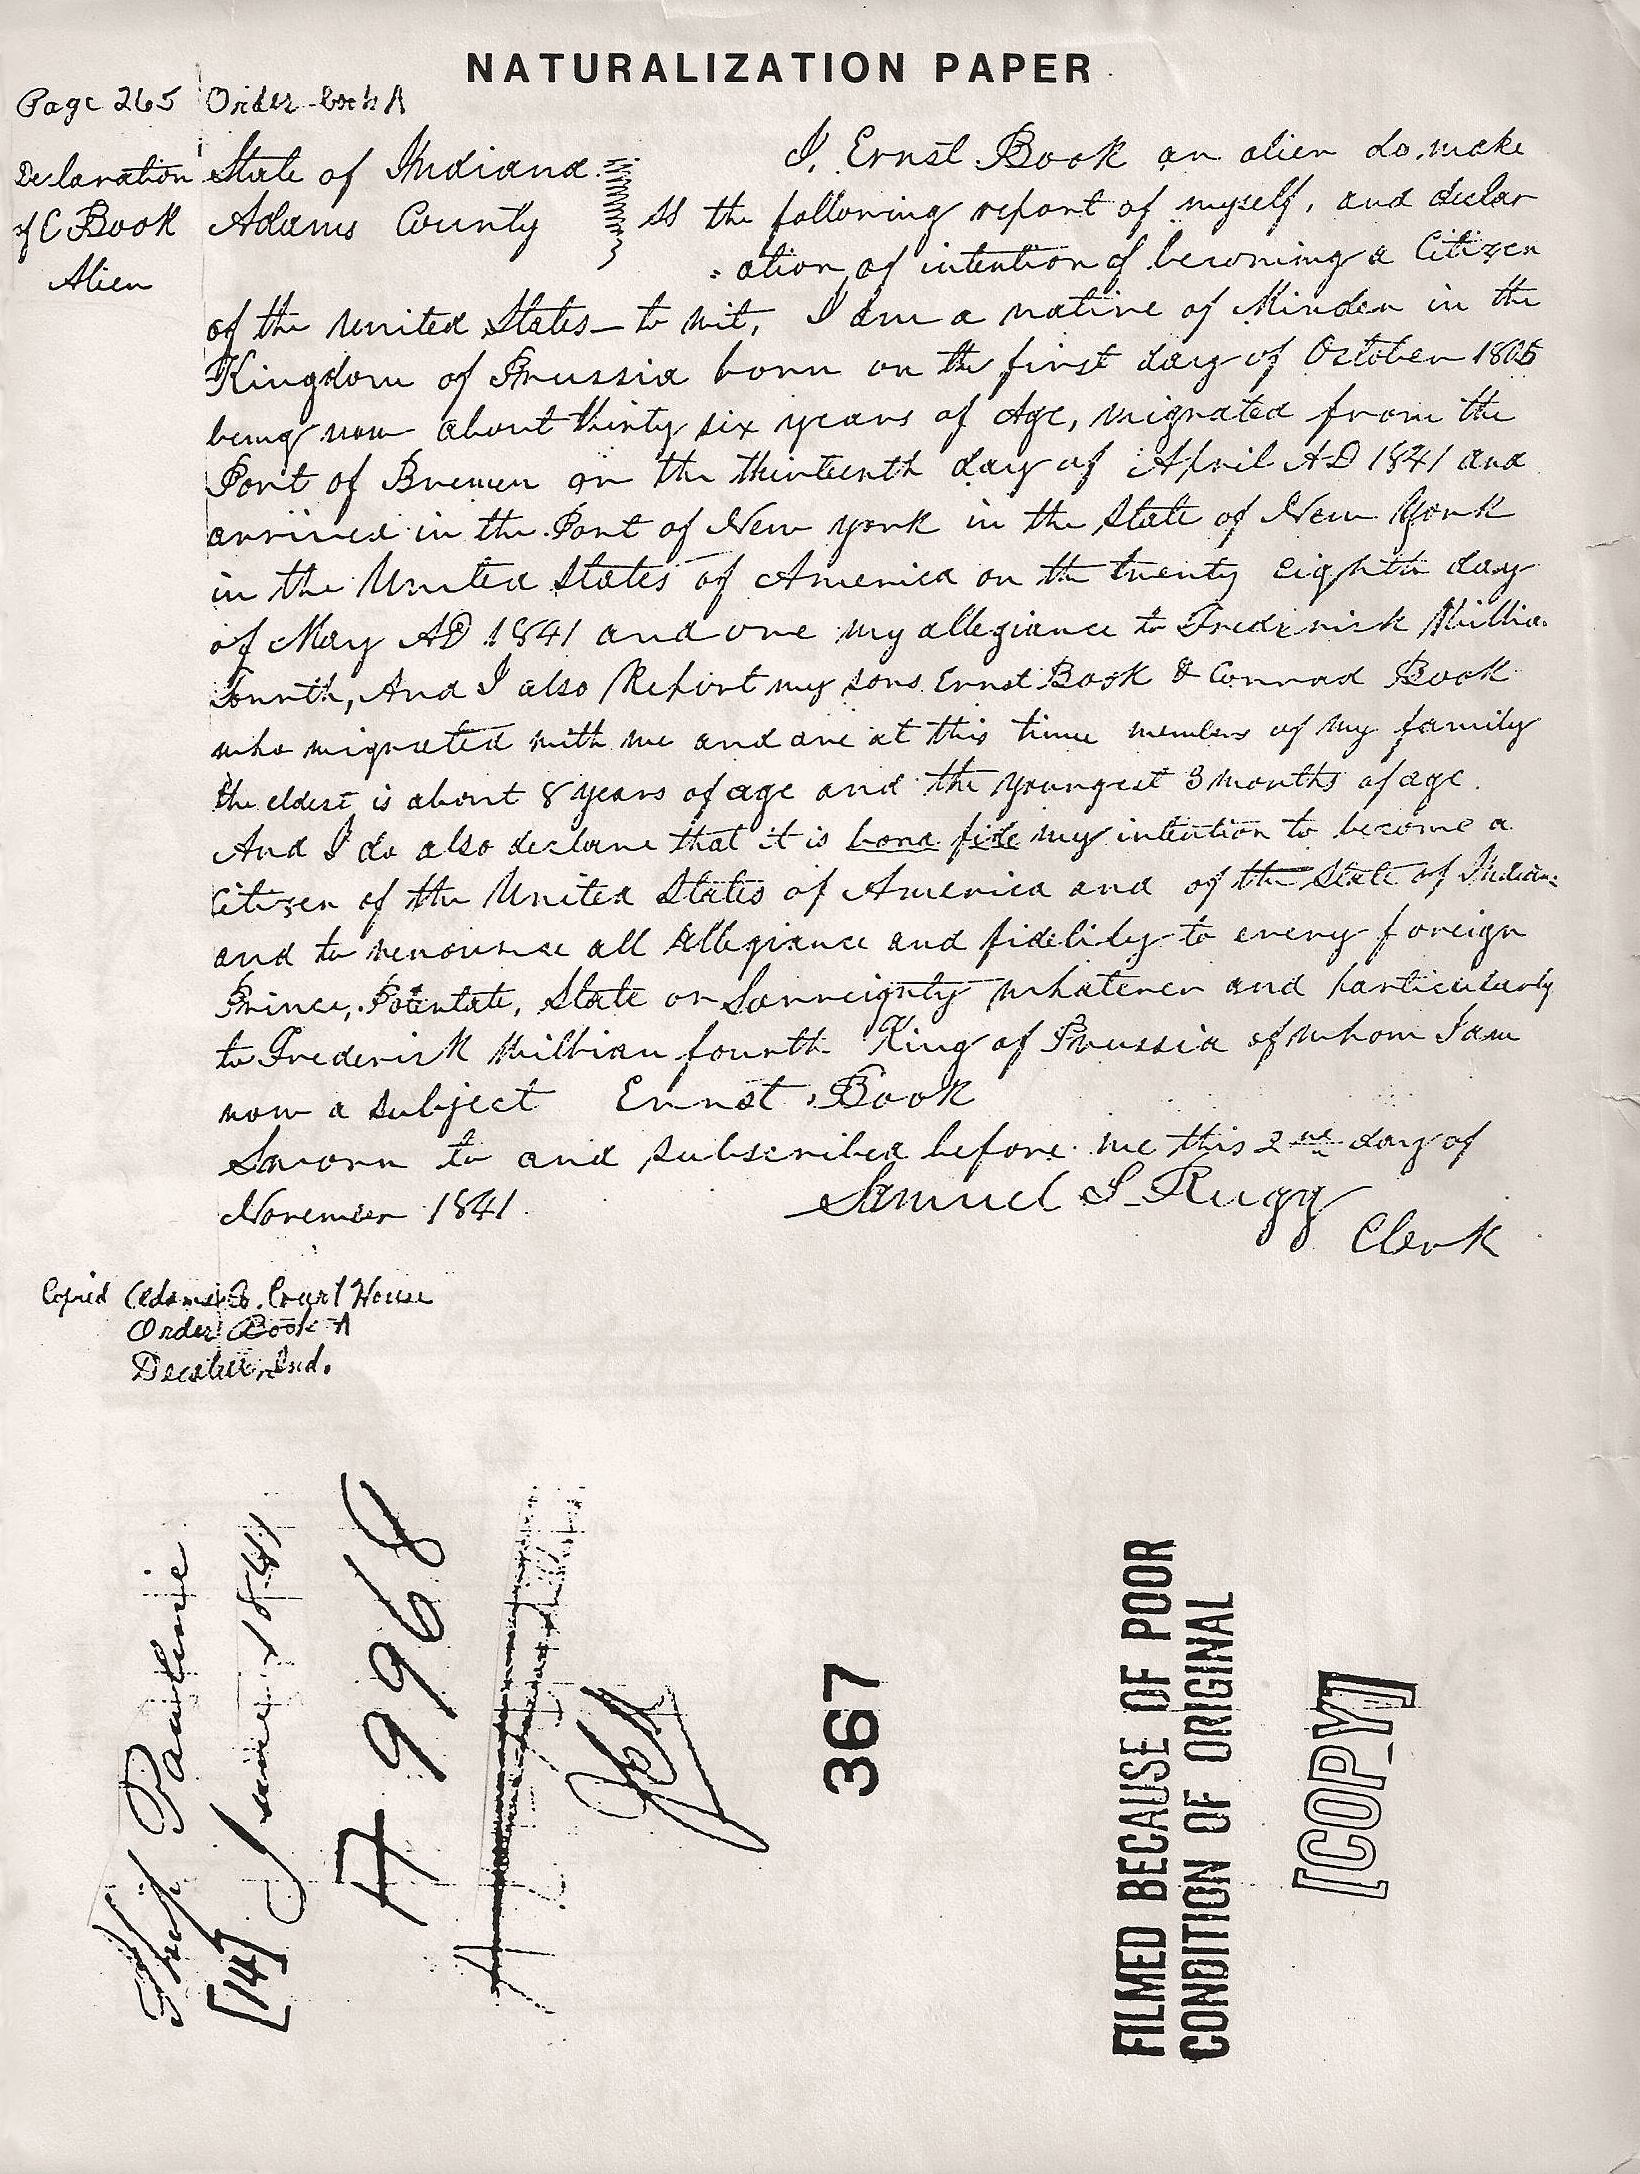 NATURALIZATION PAPER
Page 265 Order book A
Declaration
of C Book
Alien
State of Indiana
Adams County
I, Ernst Book an alien do make
SS the following report of myself, and declar
ation of intention of becoming a Citizen
of the United States to wit, I am a native of Minden in the
Kingdom of Prussia born on the first day of October 1805
being now about thirty six years of Age, migrated from the
Port of Bremen on the thirteenth day of April AD 1841 and
arrived in the Port of New york in the State of New York
in the United States of America on the twenty eighth day
of May AD 1841 and owe my allegiance to Frederick Willia
Fourth, And I also Report my sons Ernst Book & Conrad Book
who migrated with me and are at this time members of my family
the eldest is about 8 years of age and the youngest 3 months of age.
And I do also declare that it is bona fide my intention to become a
Citizen of the United States of America and of the State of Indian
and to renounce all Allegiance and fidelity to every foreign
Prince, Potentate, State or Sovreignty whatever and particularly
to Frederick William fourth King of Prussia of whom I am
now a subject Ernst Book
Sworn to and subscribed before me this 2nd day of
November 1841.
Samuel S. Rugg
Clerk
Copied Adams Co. Court House
Order Book A
Decatur, Ind.
Ship Pauline
[14] June 1 1841
A 9968
367
FILMED BECAUSE OF POOR
CONDITION OF ORIGINAL
[COPY]